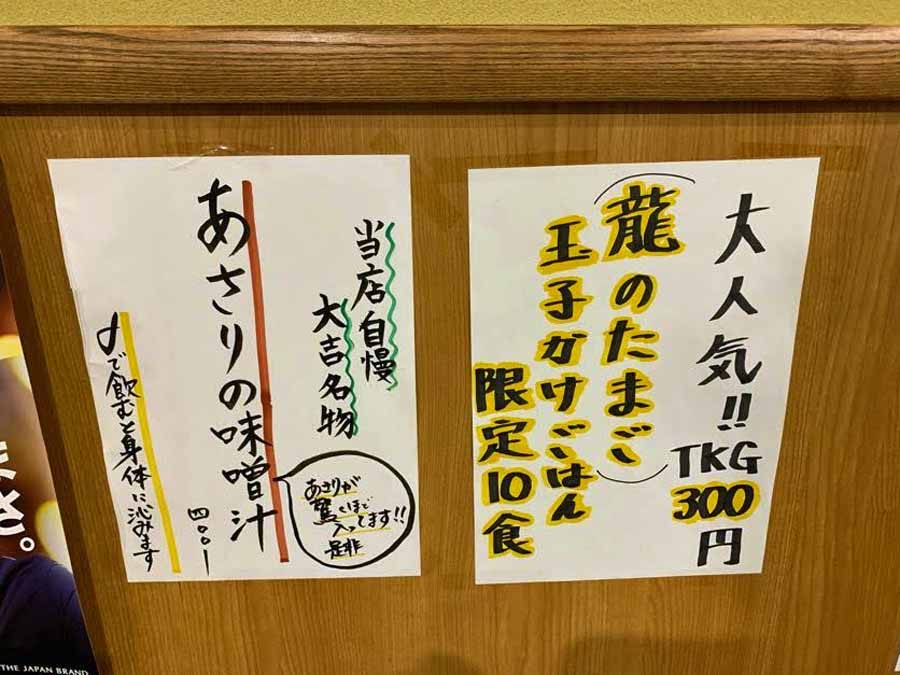 大人気!!
TKG
300円
(龍のたまご)
玉子かけごはん
限定10食
当店自慢
大吉名物
あさりの味噌汁
四〇〇ー
あさりが
驚くほど
入ってます!!
是非
〆で飲むと身体に沁みます
さ。
THE JAPAN BRAND